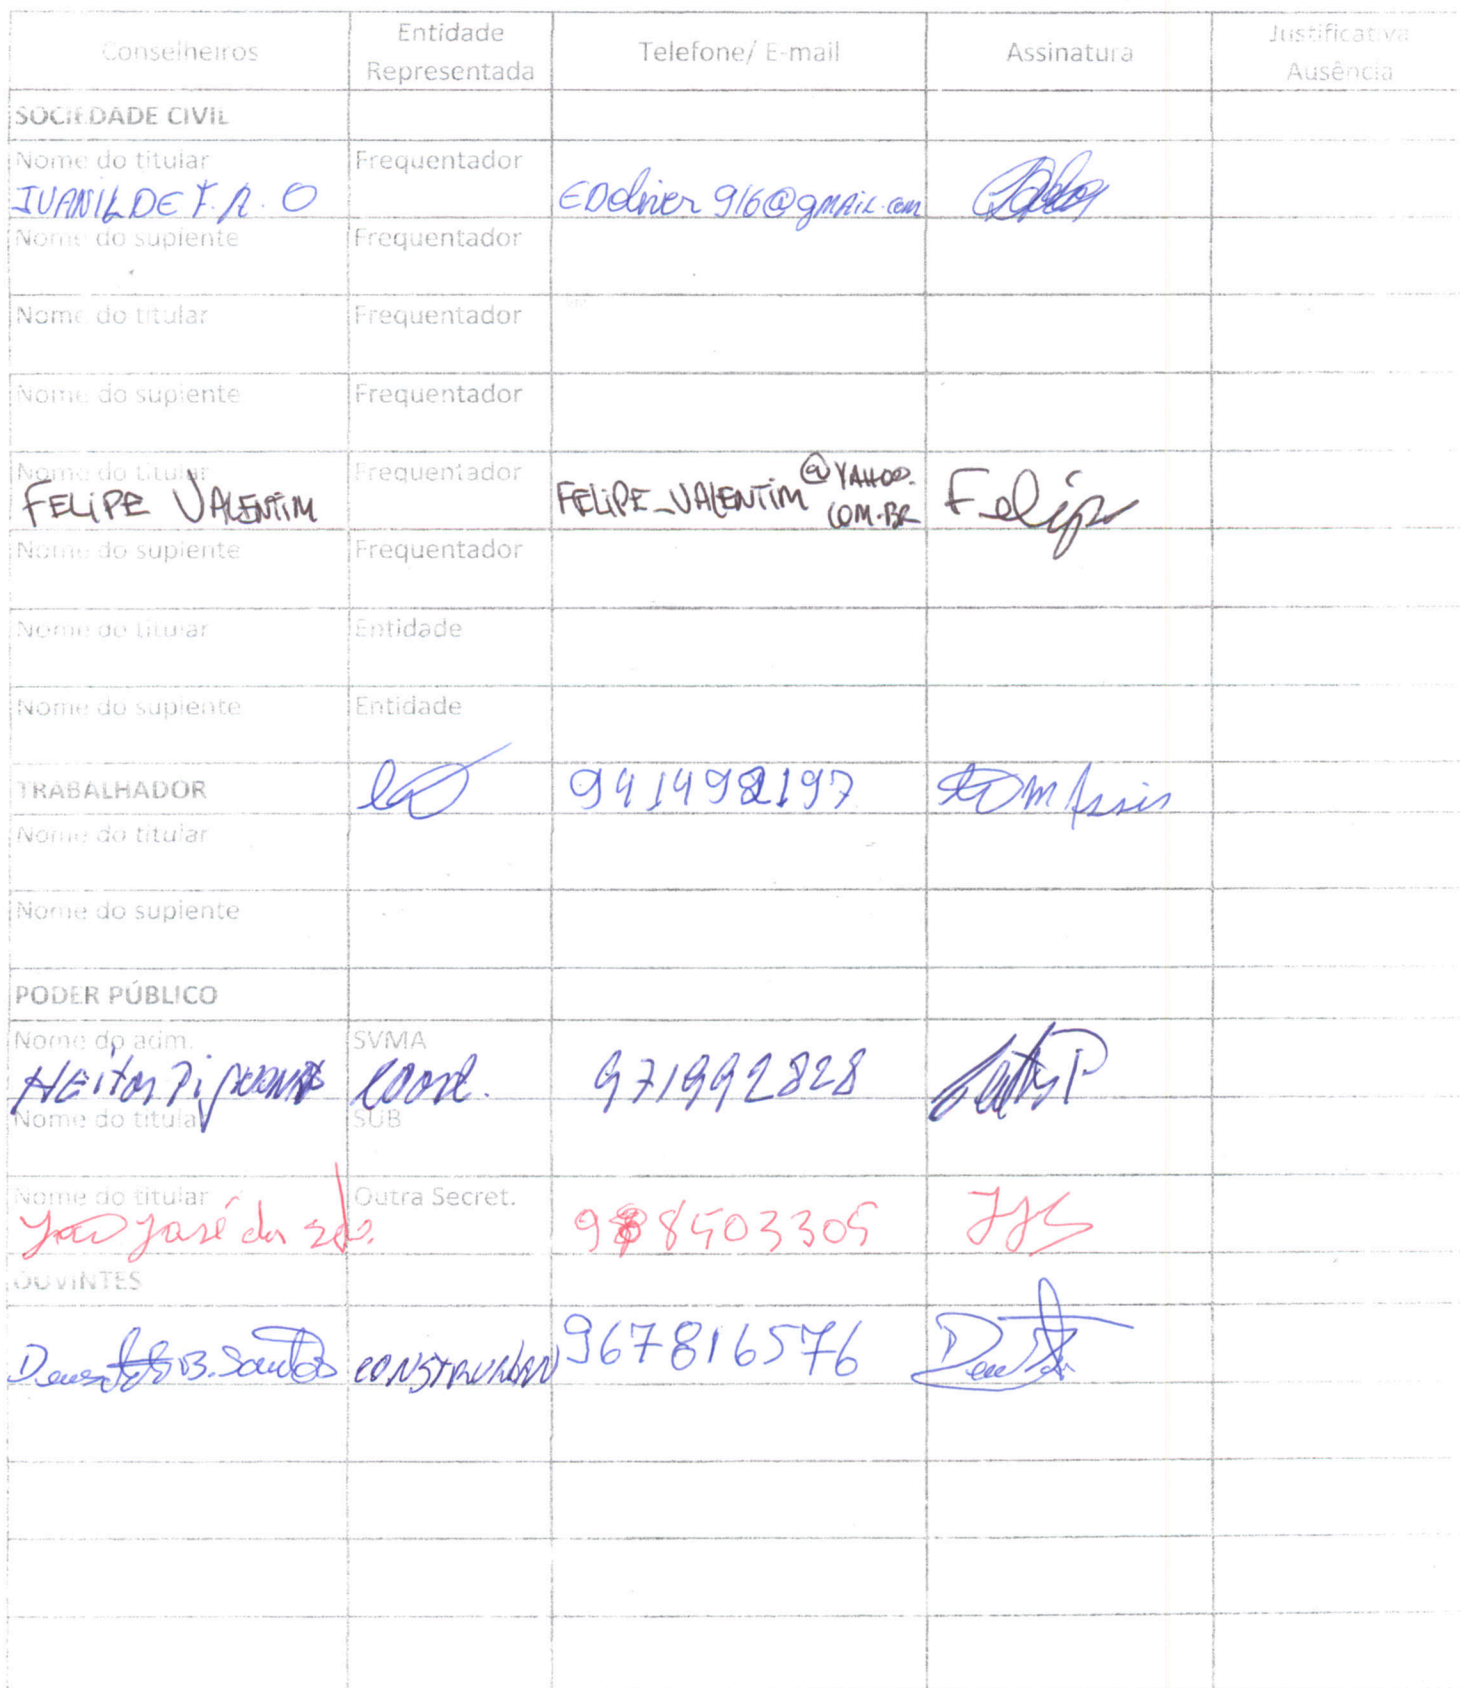 Conselheiros Entidade Representada Telefone/ E-mail Assinatura Justificativa Ausência
SOCIEDADE CIVIL
Nome do titular Frequentador
IVANILDE F. A. O EDoliver 916@gmail.com
Nome do suplente Frequentador
Nome do titular Frequentador
Nome do suplente Frequentador
Nome do titular Frequentador
FELIPE VALENTIM FELIPE_VALENTIM@YAHOO.COM.BR Felipe
Nome do suplente Frequentador
Nome do titular Entidade
Nome do suplente Entidade
TRABALHADOR 941498197 Assis
Nome do titular
Nome do suplente
PODER PÚBLICO
Nome do adm. SVMA
Heitor coord. 971992828
Nome do titular SUB
Nome do titular Outra Secret.
João José da 503305 JJS
OUVINTES
B. Santos 967816576